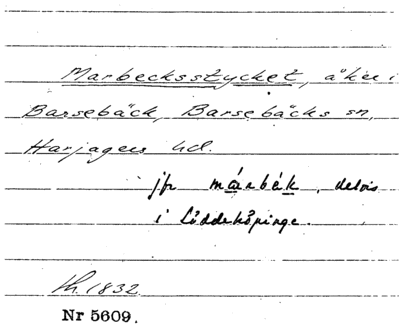 Marbecksstycket, åker i
Barsebäck, Barsebäcks sn,
Harjagers hd.
jfr márbä́k, delvis
i Löddeköpinge.
lh. 1832
Nr 5609.